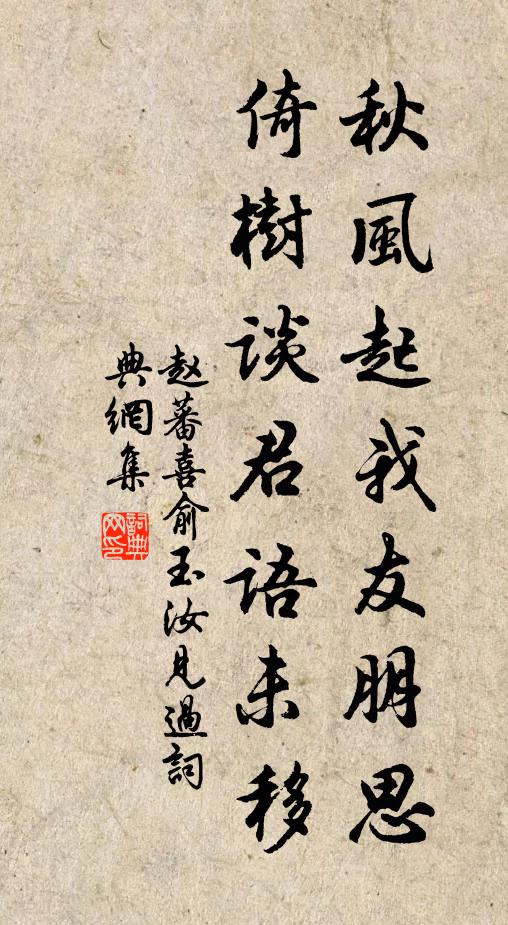 秋風起我友朋思
倚樹談君語未移
赵蕃喜俞玉汝見過詞
典網集
詞典
网印